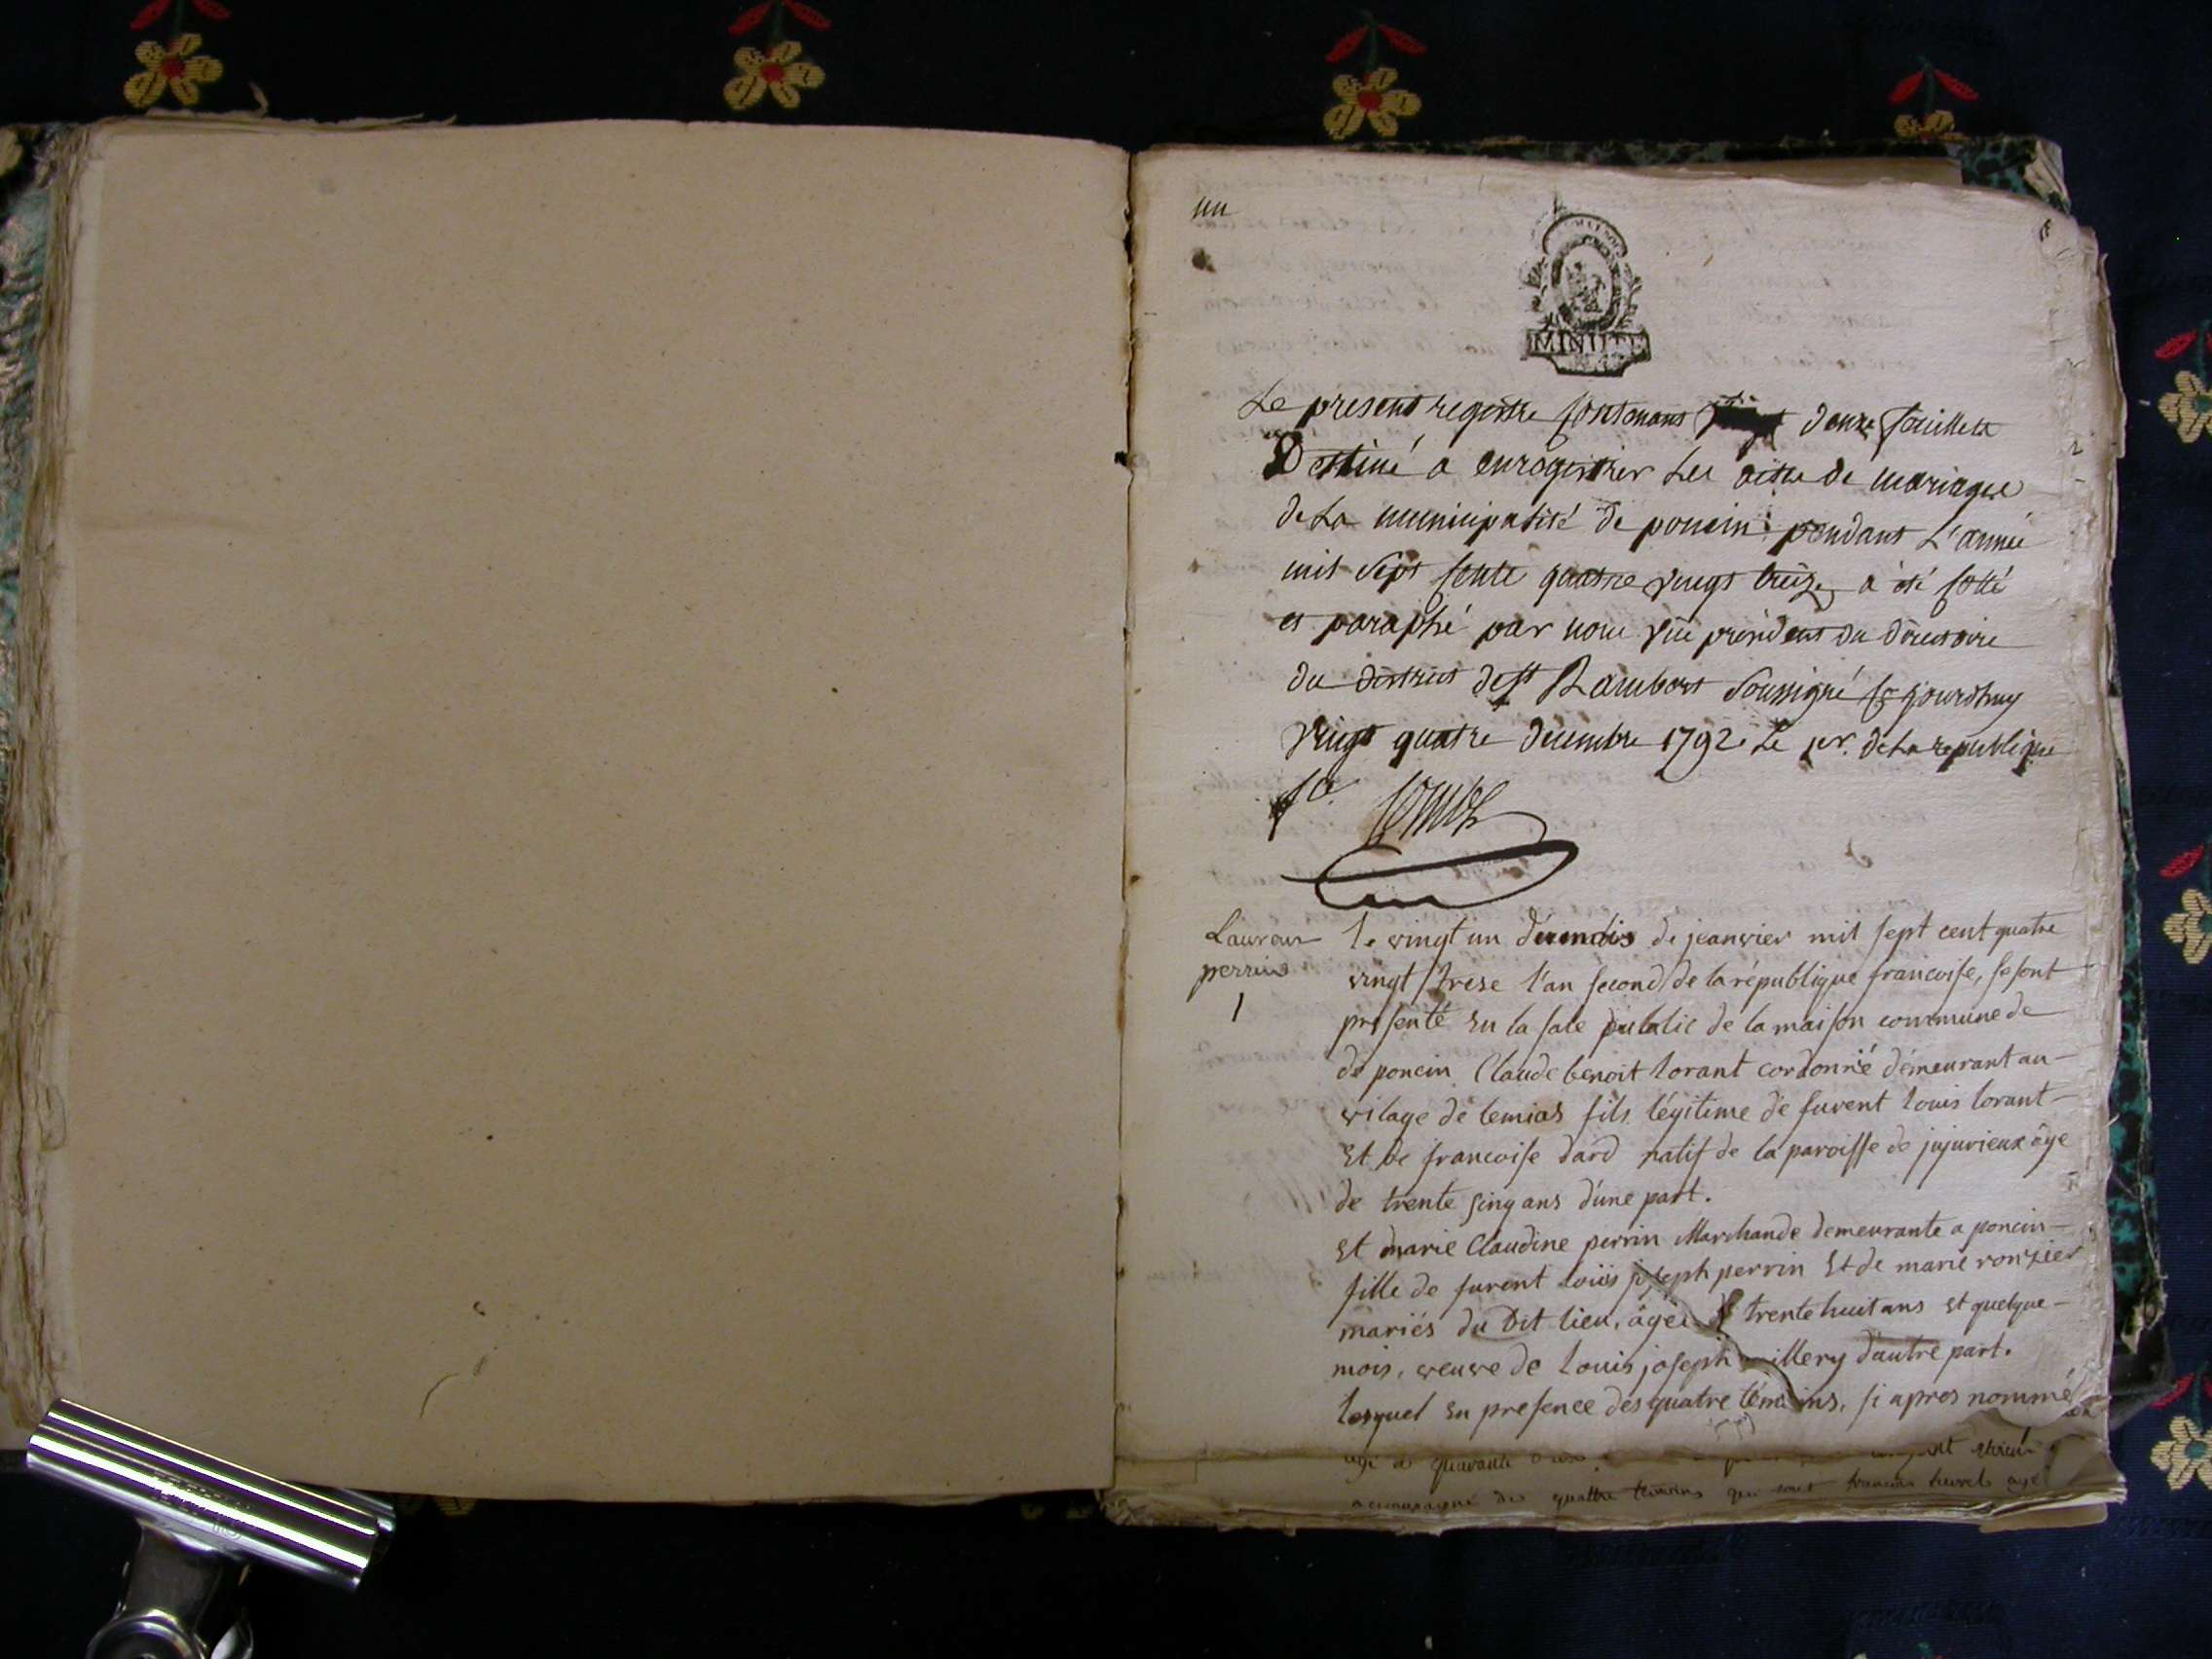 un
MINUTE
Le present registre contenant douze feuillets
Destiné a enregistrer les actes de mariages
de La municipalité de poncin pendant L'année
mil sept cents quatre vingt treize, a été cotté
et paraphé par nous vice président du directoire
du district de st Rambert soussigné ce jourdhuy
vingt quatre décembre 1792 Le 1er. de La république
Laurent
perrin
1
le vingt un de jeanvier mil sept cent quatre
vingt trese l'an second de la république francoise, se sont
présenté en la sale publlic de la maison commune de
de poncin Claude benoit lorant cordonnié démeurant au
vilage de lemias fils légitime de fuvent louis lorant
Et de francoise dard natif de la paroisse de jujurieux âge
de trente sinq ans d'une part.
Et marie Claudine perrin Marchande demeurante a poncin
fille de furent loüis joseph perrin Et de marie ronzier
mariés du Dit lieu, âgée de trente huit ans et quelque
mois, veuve de louis joseph d'autre part.
lesquel en presence des quatre témoins, si apres nommé
agé de quarante
accompagné des quattre témoins qui sont francois agé